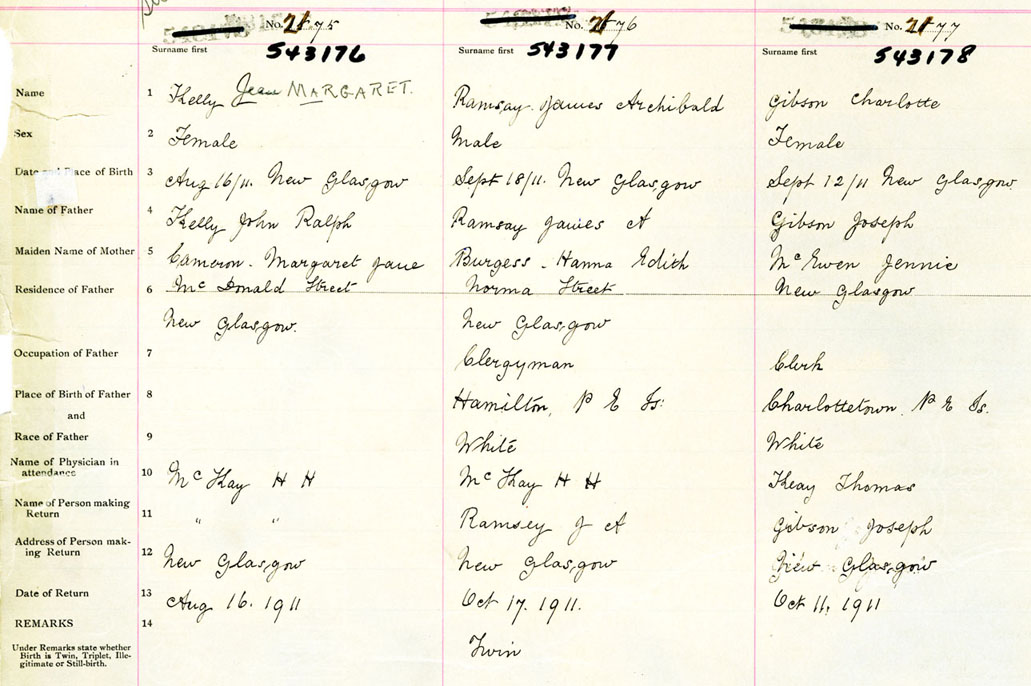 No. 2175
No. 2176
No. 2177
Surname first 543176
Surname first 543177
Surname first 543178
Name 1 Kelly Jean MARGARET. Ramsay James Archibald Gibson Charlotte
Sex 2 Female Male Female
Date and Place of Birth 3 Aug 16/11. New Glasgow Sept 18/11. New Glasgow Sept 12/11 New Glasgow
Name of Father 4 Kelly John Ralph Ramsay James A Gibson Joseph
Maiden Name of Mother 5 Cameron - Margaret Jane Burgess - Hanna Edith McEwen Jennie
Residence of Father 6 McDonald Street Norma Street New Glasgow
New Glasgow. New Glasgow
Occupation of Father 7 Clergyman Clerk
Place of Birth of Father 8 Hamilton, P E Is: Charlottetown, P E Is.
and
Race of Father 9 White White
Name of Physician in
attendance 10 McKay H H McKay H H Keay Thomas
Name of Person making
Return 11 " " Ramsey J A Gibson Joseph
Address of Person mak-
ing Return 12 New Glasgow New Glasgow New Glasgow
Date of Return 13 Aug 16. 1911 Oct 17. 1911. Oct 11, 1911
REMARKS 14
Twin
Under Remarks state whether
Birth is Twin, Triplet, Ille-
gitimate or Still-birth.